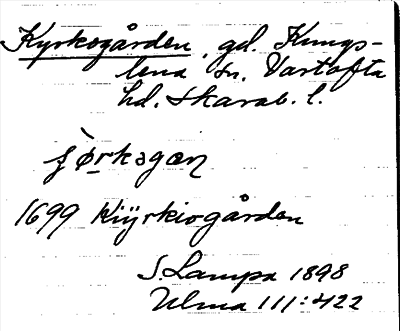 Kyrkogården, gd. Kungs-
lena sn. Vartofta
hd. Skarab. l.
1699 Kiÿrkiogården
S. Lampa 1898
Ulma 111:422